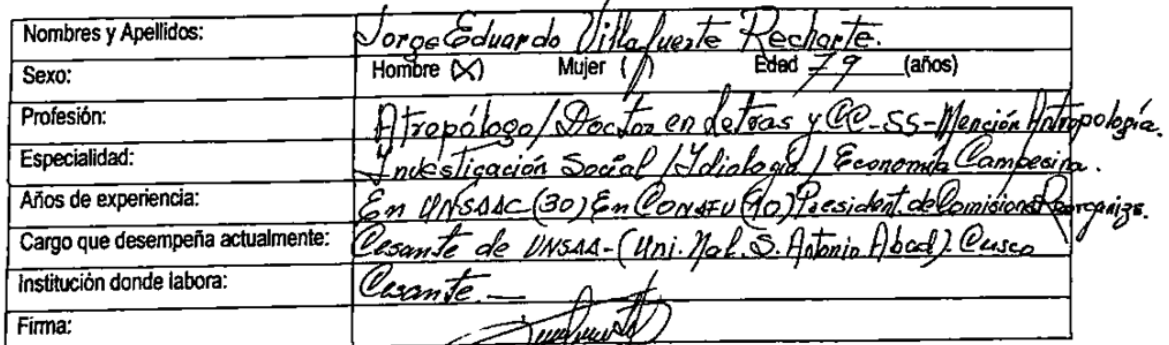 Nombres y Apellidos: Jorge Eduardo Villafuerte Recharte.
Sexo: Hombre (X) Mujer ( ) Edad 79 (años)
Profesión: Atropólogo/Doctor en Letras y CC-SS-Mención Antropología.
Especialidad: Investigación Social / Idiología / Economía Campesina.
Años de experiencia: En UNSAAC (30) En CONAFU (10) President. de Comisiones Reorganiza.
Cargo que desempeña actualmente: Cesante de UNSAA-(Uni. Nal. S. Antonio Abad) Cusco
Institución donde labora: Cesante. —
Firma: